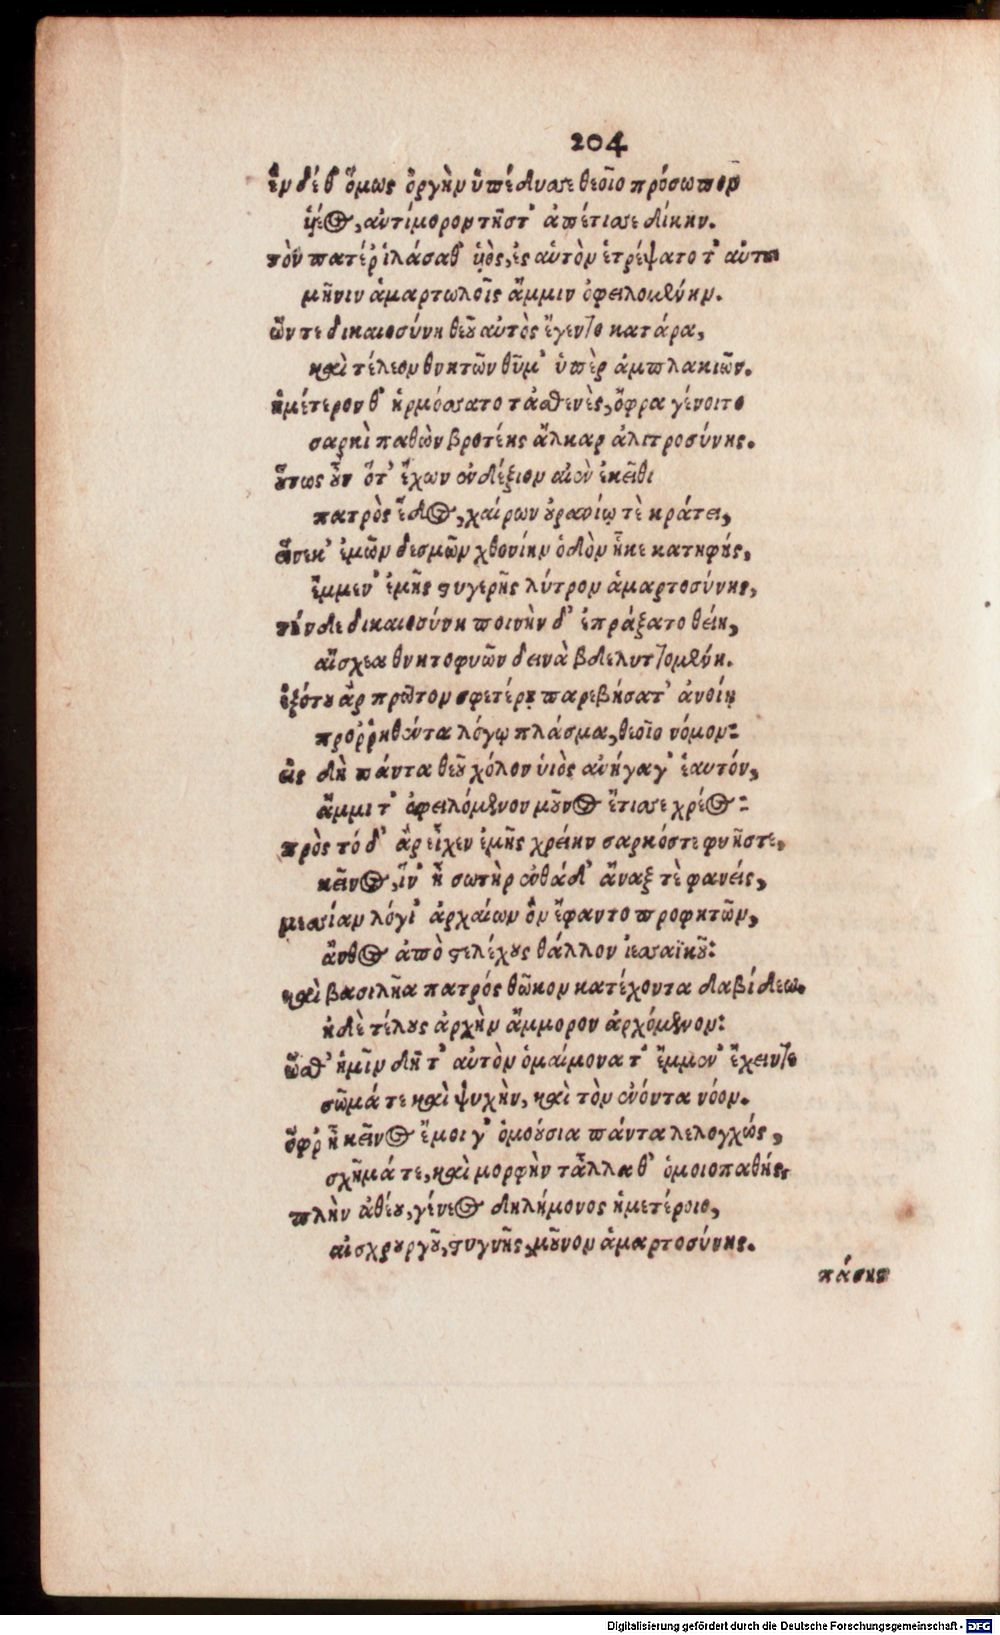 204
ἐν δέ θ' ὅμως ὀργὴν ὑπέδυσε θεοῖο πρόσωπον
ὑέος, ἀντίμορον τῆστ' ἀπέτισε δίκην.
τὸν πατέρ' ἱλάσαθ' ὑὸς, ἐς αὑτὸν ἐτρέψατο τ' αὐτοῦ
μῆνιν ἁμαρτωλοῖς ἄμμιν ὀφειλομένην.
ὥντε δικαιοσύνη θεοῦ αὐτὸς ἔγεντο κατάρα,
καὶ τέλεον θνητῶν θῦμ' ὑπὲρ ἀμπλακιῶν.
ἡμέτερον θ' ἡρμόσατο τἀσθενὲς, ὄφρα γένοιτο
σαρκὶ παθὼν βροτέης ἄλκαρ ἀλιτροσύνης.
οὕτως οὖν ὅτ' ἔχων ἐνδέξιον αἰὲν ἐκεῖθι
πατρὸς ἕδος, χαίρων οὐρανίῳ τὲ κράτει,
εἵνεκ' ἐμῶν δεσμῶν χθονίην ὁδὸν ἧκε κατηφής,
ἔμμεν' ἐμῆς στυγερῆς λύτρον ἁμαρτοσύνης,
τήνδε δικαιοσύνη ποινὴν δ' ἐπράξατο θείη,
αἴσχεα θνητοφυῶν δεινὰ βδελυττομένη.
ἐξότου ἂρ πρῶτον σφετέρῃ παρεβήσατ' ἀνοίῃ
προῤῥηθέντα λόγῳ πλάσμα, θεοῖο νόμον:
εἰς δὴ πάντα θεοῦ χόλον υἱὸς ἀνήγαγ' ἑαυτόν,
ἄμμι τ' ὀφειλόμενον μοῦνος ἔτισε χρέος:
πρὸς τό δ' ἂρ εἶχεν ἐμῆς χρείην σαρκόστε φυῆστε,
κεῖνος, ἵν' ᾖ σωτὴρ ἐνθάδ' ἄναξ τὲ φανείς,
μεσίαν λόγι' ἀρχαίων ὃν ἔφαντο προφητῶν,
ἄνθος ἀπὸ στελέχους θάλλον ἰεσαϊκοῦ:
καὶ βασιλῆα πατρός θῶκον κατέχοντα δαβίδεω.
ἠδὲ τέλους ἀρχὴν ἄμμορον ἀρχόμενον:
ὥσθ' ἡμῖν δή τ' αὐτὸν ὁμαίμονα τ' ἔμμεν' ἔχειντε
σῶμά τε καὶ ψυχὴν, καὶ τὸν ἐνόντα νόον.
ὄφρ' ᾖ κεῖνος ἔμοι γ' ὁμούσια πάντα λελογχώς,
σχῆμά τε, καὶ μορφὴν τἄλλα θ' ὁμοιοπαθής:
πλὴν ἀθέου, γένεος δηλήμονος ἡμετέροιο,
αἰσχρουργοῦ, στυγνῆς, μοῦνον ἁμαρτοσύνης.
πάσης
Digitalisierung gefördert durch die Deutsche Forschungsgemeinschaft - DFG